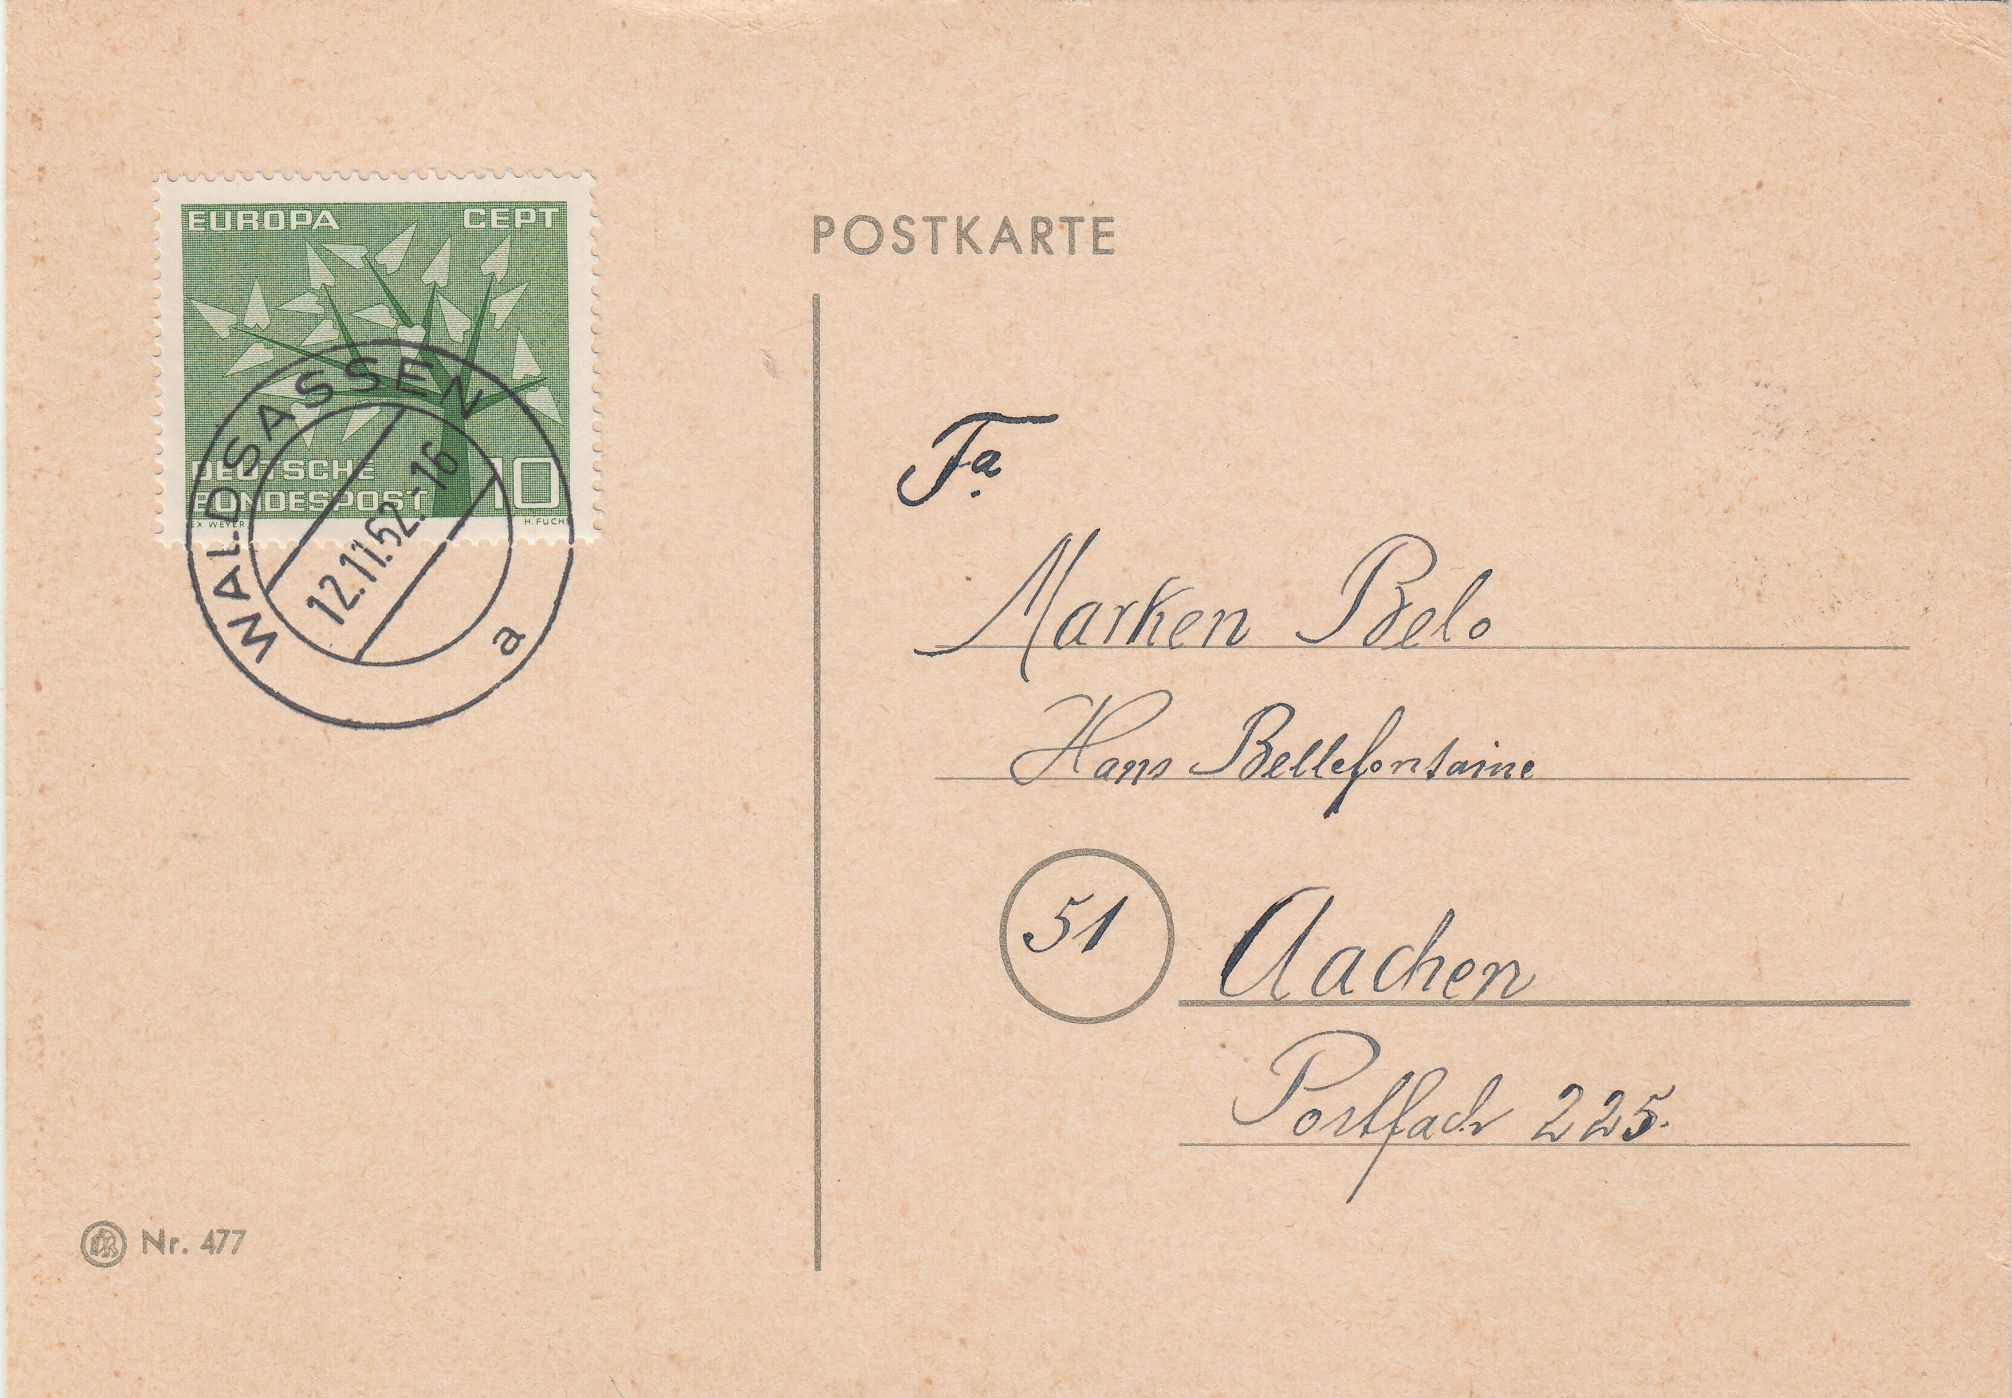 EUROPA CEPT
DEUTSCHE
BUNDESPOST 10
EX WEYER H. FUCHS
WALDSASSEN
12.11.62.-16
a
POSTKARTE
Fa.
Marken Belo
Hans Bellefontaine
51 Aachen
Postfach 225.
Nr. 477